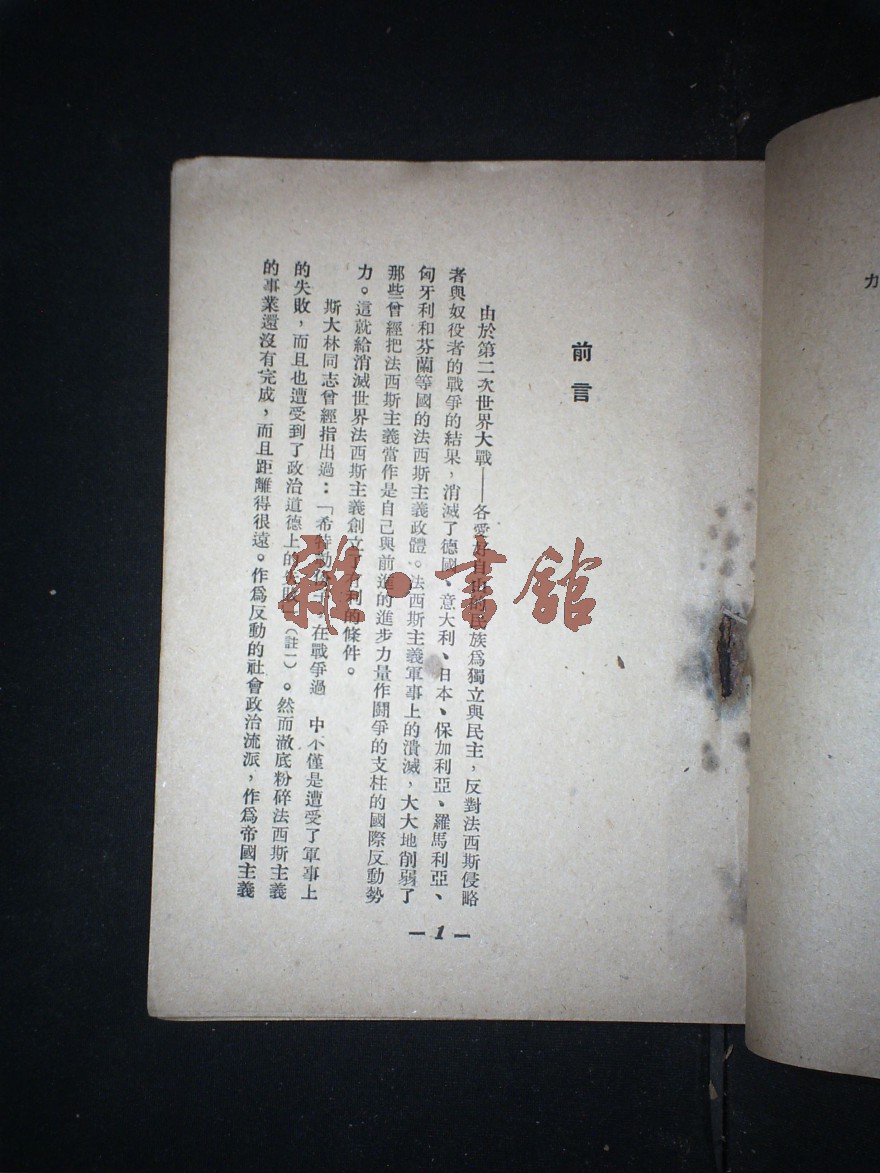 前言
由於第二次世界大戰——各愛好自由的民族爲獨立與民主，反對法西斯侵略
者與奴役者的戰爭的結果，消滅了德國、意大利、日本、保加利亞、羅馬利亞、
匈牙利和芬蘭等國的法西斯主義政體。法西斯主義軍事上的潰滅，大大地削弱了
那些曾經把法西斯主義當作是自己與前進的進步力量作鬪爭的支柱的國際反動勢
力。這就給消滅世界法西斯主義創立了有利的條件。
斯大林同志曾經指出過：「希特勒在戰爭過中不僅是遭受了軍事上
的失敗，而且也遭受到了政治道德上的失敗」（註一）。然而澈底粉碎法西斯主義
的事業還沒有完成，而且距離得很遠。作爲反動的社會政治流派，作爲帝國主義
— 1 —
力
雜·書館